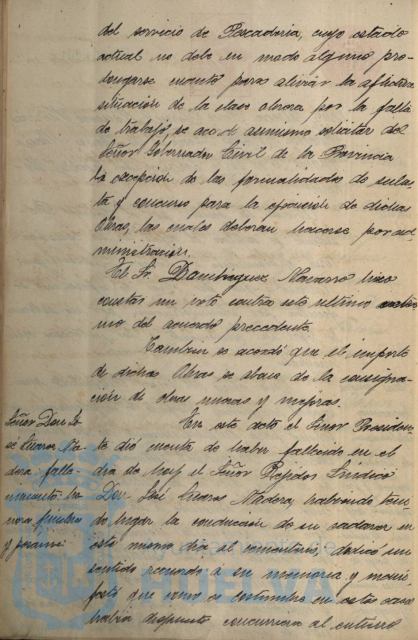 del servicio de Pescadería, cuyo estado
actual no debe en modo alguno pro-
longarse cuanto para aliviar la aflictiva
situación de la clase obrera por la falta
de trabajo, se acordó asimismo solicitar del
Señor Gobernador Civil de la Provincia
la excepción de las formalidades de subas-
ta y concurso para la ejecución de dichas
Obras, las cuales deberán hacerse por ad-
ministración.
El Sr. Domínguez Navarro hizo
constar su voto contra este último extre-
mo del acuerdo precedente.
También se acordó que el importe
de dichas Obras se abone de la consigna-
ción de obras nuevas y mejoras.
Señor Don Jo-
sé Suarez Ma-
dera falle-
cimiento. Ho-
nores fúnebres
y pésame
En este acto el Señor Presiden-
te dió cuenta de haber fallecido en el
día de hoy el Señor Regidor Síndico
Don José Suarez Madera, habiendo teni-
do lugar la conducción de su cadaver en
este mismo día al cementerio, dedicó un
sentido recuerdo á su memoria y mani-
festó que como de costumbre en estos casos
había dispuesto concurriera al entierro